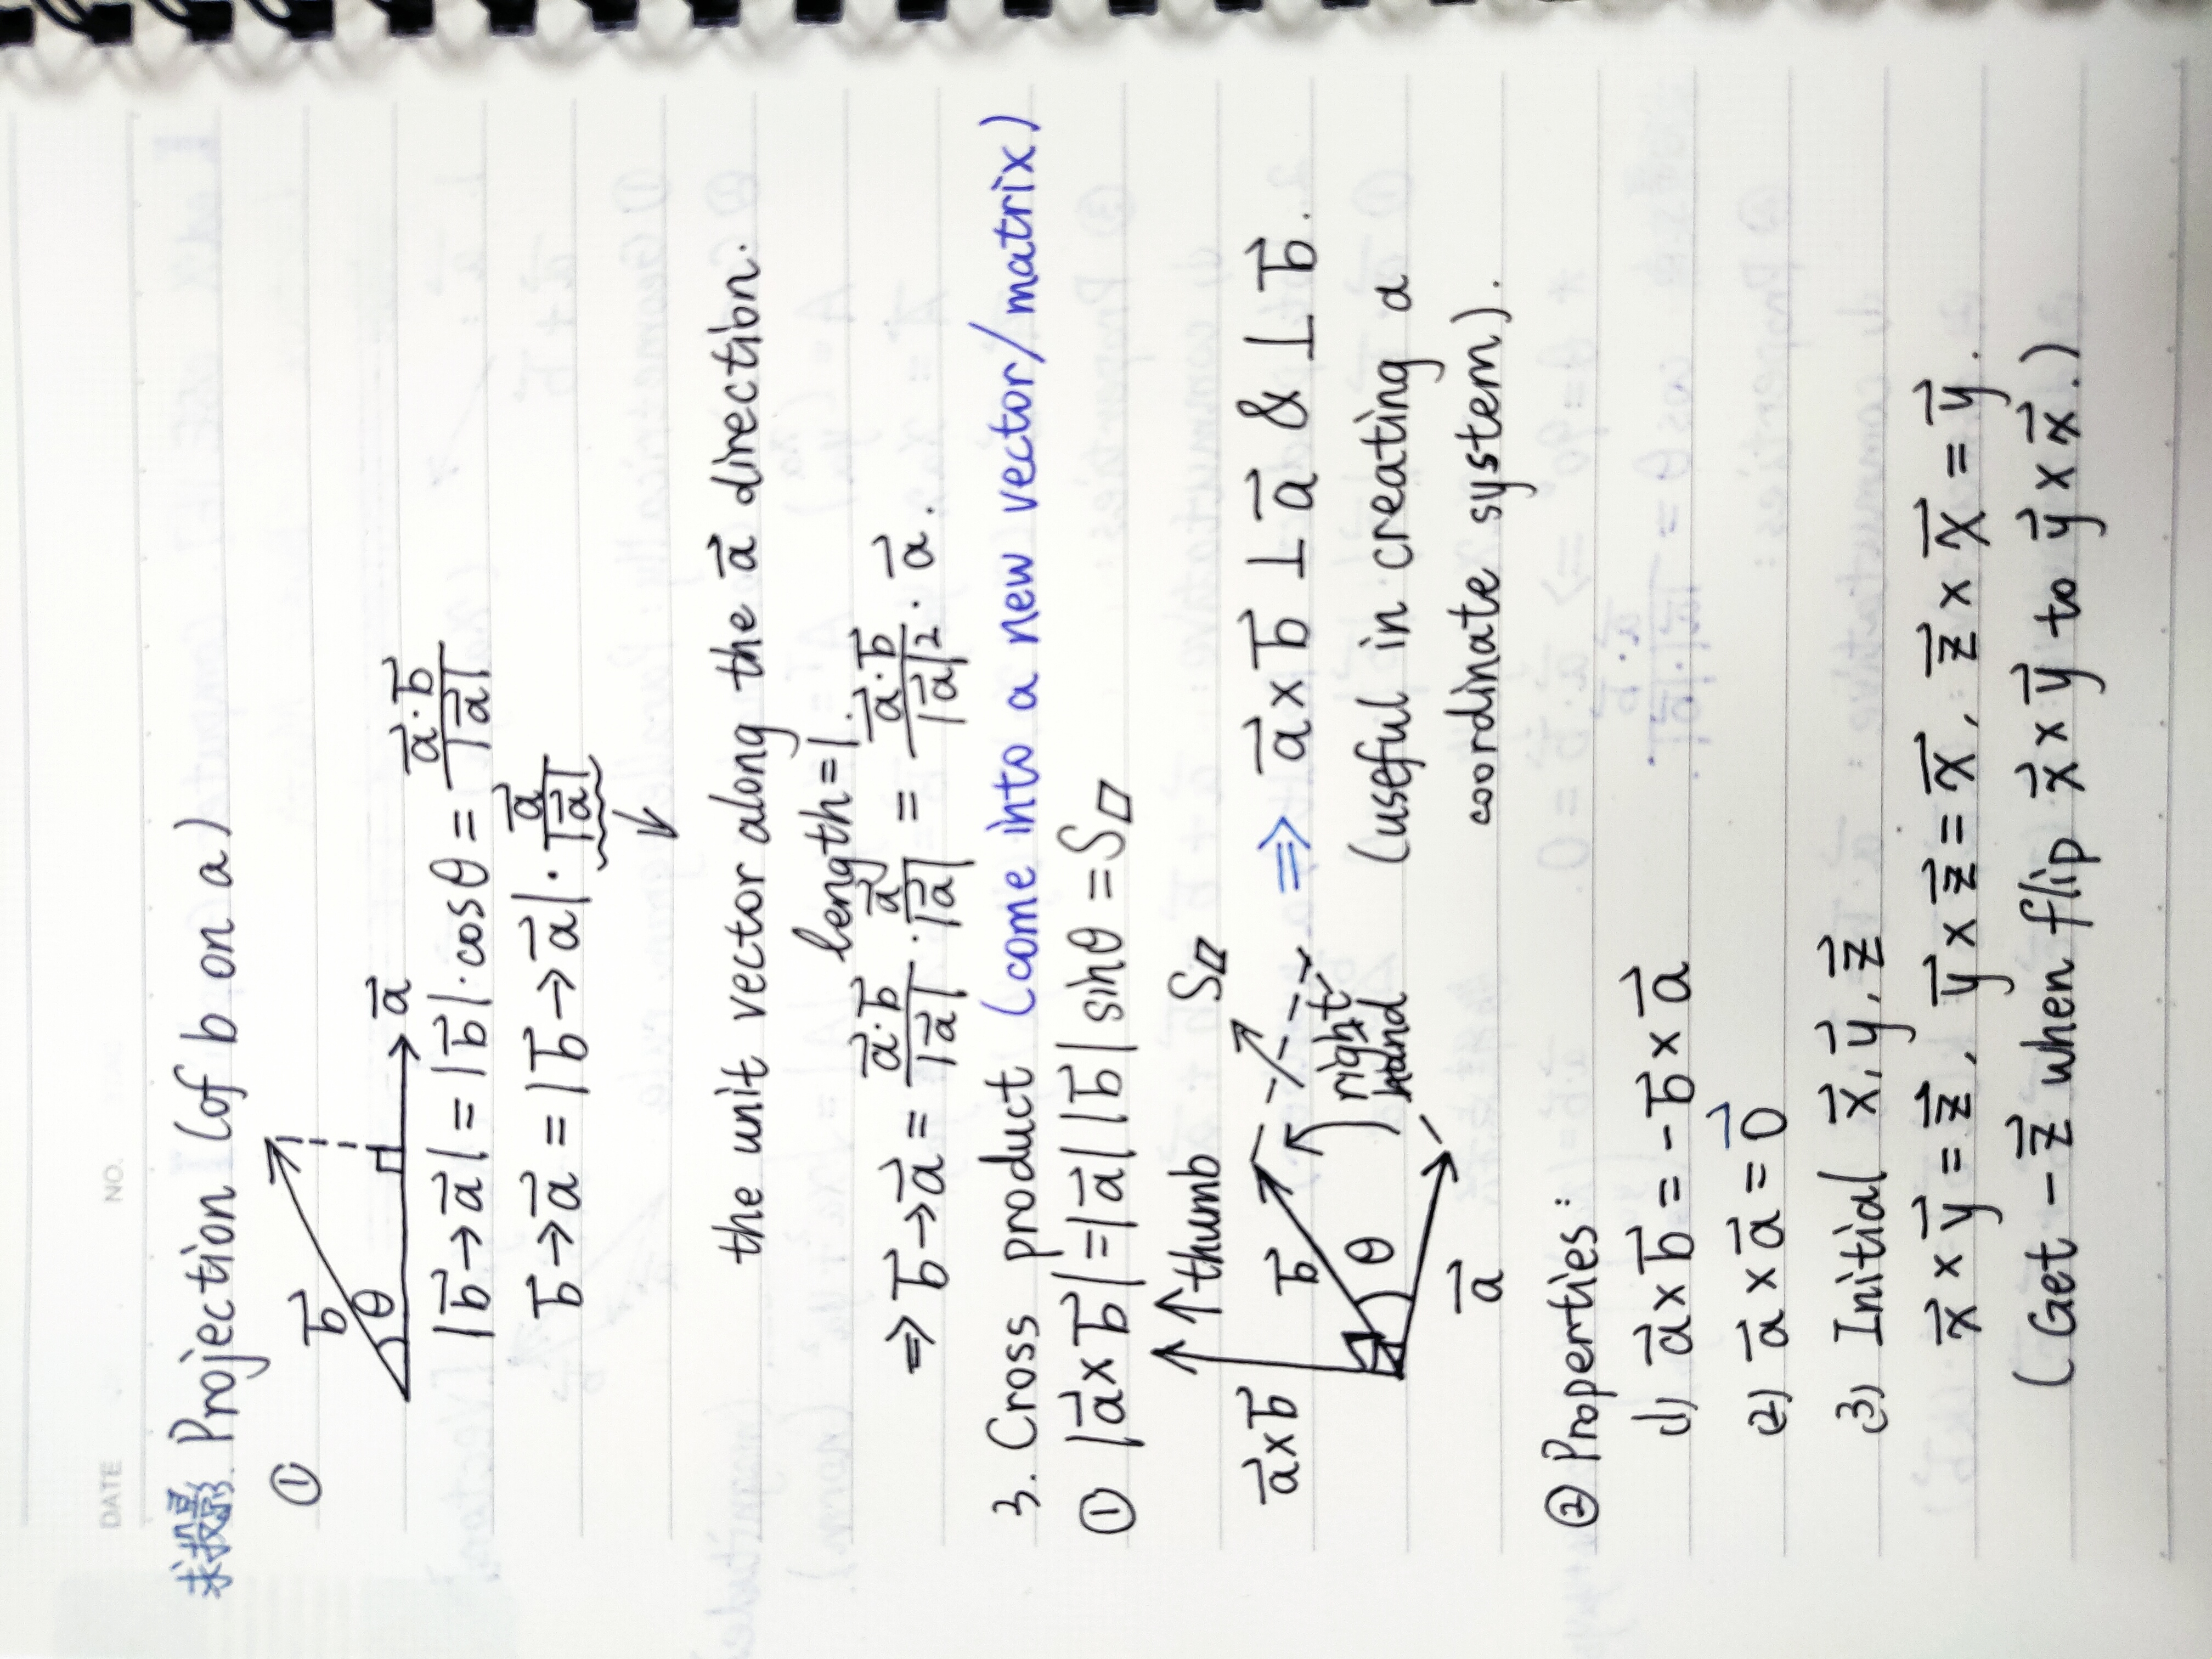 DATE NO.
求投影. Projection (of b on a)
①
b⃗ θ a⃗
|b⃗→a⃗| = |b⃗|·cosθ = a⃗·b⃗/|a⃗|
b⃗→a⃗ = |b⃗→a⃗|·a⃗/|a⃗|
↓
the unit vector along the a⃗ direction.
length=1.
⇒ b⃗→a⃗ = a⃗·b⃗/|a⃗| · a⃗/|a⃗| = a⃗·b⃗/|a⃗|² · a⃗.
3. Cross product (come into a new vector/matrix)
① |a⃗×b⃗|=|a⃗||b⃗|sinθ=S▱
↑thumb S▱
a⃗×b⃗ b⃗ ⇒ a⃗×b⃗ ⊥ a⃗ & ⊥ b⃗.
θ right
hand (useful in creating a
a⃗ coordinate system).
② Properties:
(1) a⃗×b⃗ = -b⃗×a⃗
(2) a⃗×a⃗ = 0⃗
(3) Initial x⃗, y⃗, z⃗
x⃗×y⃗=z⃗, y⃗×z⃗=x⃗, z⃗×x⃗=y⃗.
(Get -z⃗ when flip x⃗×y⃗ to y⃗×x⃗.)